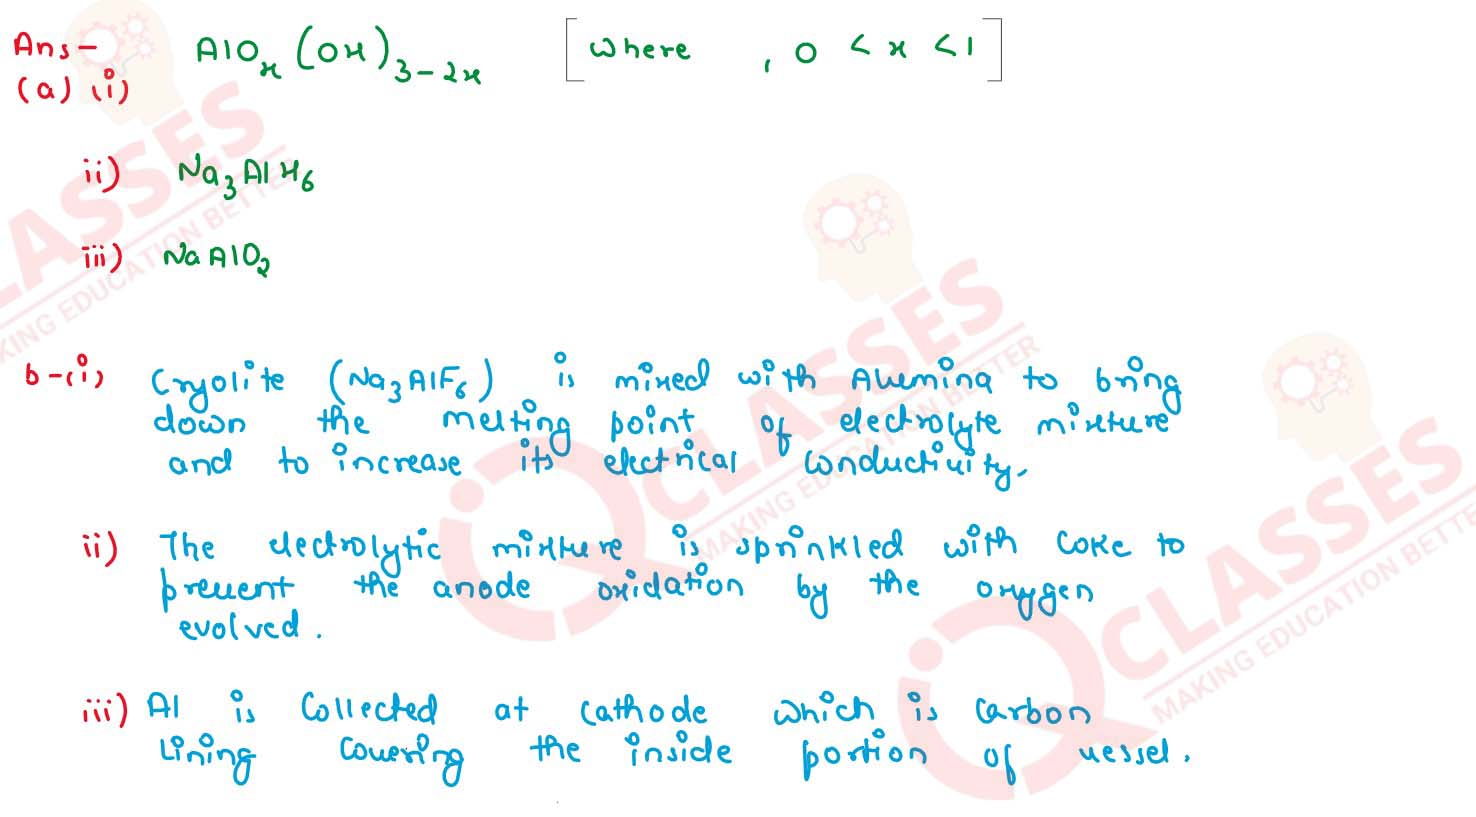 Ans-
AlOx (OH)3-2x [where , 0 < x < 1]
(a) (i)
ii) Na3AlH6
iii) NaAlO2
b-(i) Cryolite (Na3AlF6) is mixed with Alumina to bring
down the melting point of electrolyte mixture
and to increase its electrical conductivity.
ii) The electrolytic mixture is sprinkled with coke to
prevent the anode oxidation by the oxygen
evolved.
iii) Al is collected at cathode which is carbon
lining covering the inside portion of vessel.
CLASSES
MAKING EDUCATION BETTER
iQ CLASSES
MAKING EDUCATION BETTER
iQ CLASSES
MAKING EDUCATION BETTER